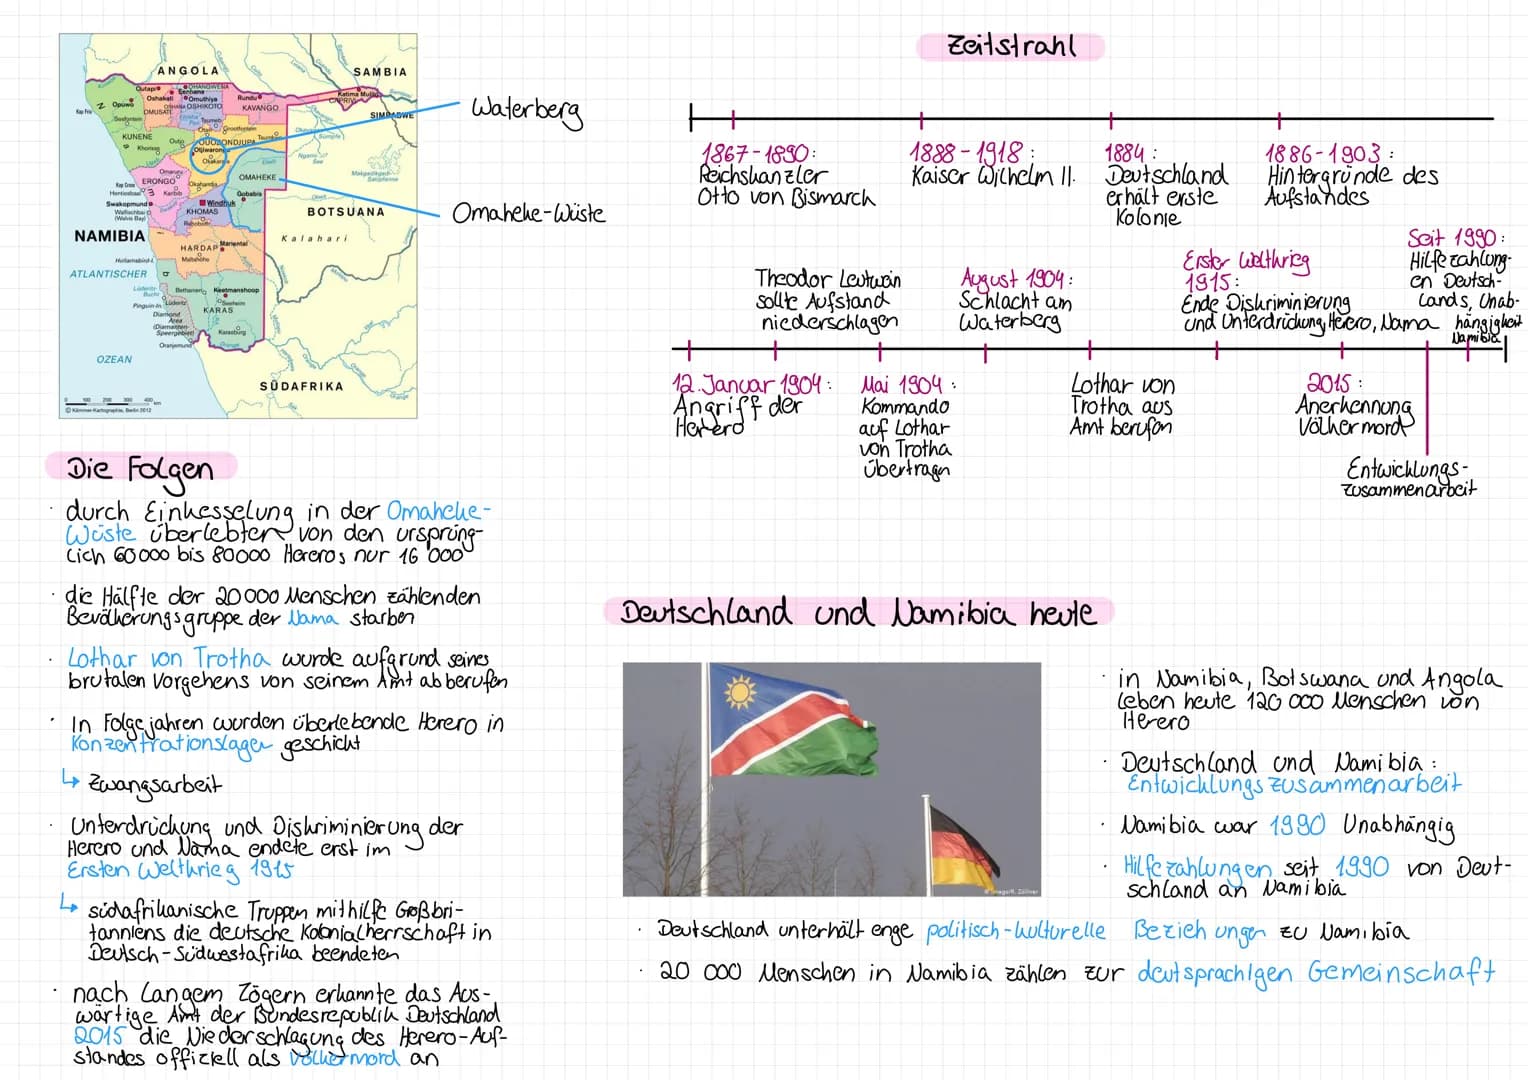 ANGOLA
SAMBIA
SIMBABWE
BOTSUANA
Kalahari
NAMIBIA
ATLANTISCHER
OZEAN
SÜDAFRIKA
Kap Fria
Opuwo
Outapi
Oshakati
Eenhana
OHANGWENA
Omuthiya
OSHIKOTO
OMUSATI
Rundu
KAVANGO
Katima Mulilo
CAPRIVI
Sesfontein
Tsumeb
Otavi
Grootfontein
KUNENE
Khorixas
Outjo
OTJOZONDJUPA
Otjiwarongo
Okakarara
Tsumkwe
Omaruru
ERONGO
Karibib
Okahandja
OMAHEKE
Gobabis
Kap Cross
Hentiesbaai
Swakopmund
Walfischbai
(Walvis Bay)
Windhuk
KHOMAS
Rehoboth
HARDAP
Mariental
Maltahöhe
Hollamsbird-I.
Lüderitz-
Bucht
Bethanien
Keetmanshoop
Lüderitz
Seeheim
KARAS
Pinguin-In.
Diamond
Area
(Diamanten-
Sperrgebiet)
Karasburg
Oranjemund
Ngami-
See
Makgadikgadi-
Salzpfanne
0 100 200 300 400 km
© Kämmer-Kartographie, Berlin 2012
Waterberg
Omaheke-Wüste
Zeitstrahl
1867-1890:
Reichskanzler
Otto von Bismarck
1888-1918:
Kaiser Wilhelm II.
1884:
Deutschland
erhält erste
Kolonie
1886-1903:
Hintergründe des
Aufstandes
Theodor Leutwein
sollte Aufstand
niederschlagen
August 1904:
Schlacht am
Waterberg
Erster Weltkrieg
1915:
Ende Diskriminierung
und Unterdrückung, Herero, Nama
Seit 1990:
Hilfezahlung-
en Deutsch-
lands, Unab-
hängigkeit
Namibia
12. Januar 1904:
Angriff der
Herero
Mai 1904:
Kommando
auf Lothar
von Trotha
übertragn
Lothar von
Trotha aus
Amt berufen
2015:
Anerkennung
Völkermord
Entwicklungs-
zusammenarbeit
Die Folgen
· durch Einkesselung in der Omaheke-
Wüste überlebten von den ursprüng-
lich 60 000 bis 80 000 Hereros nur 16 000
· die Hälfte der 20 000 Menschen zählenden
Bevölkerungsgruppe der Nama starben
· Lothar von Trotha wurde aufgrund seines
brutalen Vorgehens von seinem Amt abberufen
· In Folgejahren wurden überlebende Herero in
Konzentrationslager geschickt
↳ Zwangsarbeit
· Unterdrückung und Diskriminierung der
Herero und Nama endete erst im
Ersten Weltkrieg 1915
↳ südafrikanische Truppen mithilfe Großbri-
tanniens die deutsche Kolonialherrschaft in
Deutsch-Südwestafrika beendeten
· nach langem Zögern erkannte das Aus-
wärtige Amt der Bundesrepublik Deutschland
2015 die Niederschlagung des Herero-Auf-
standes offiziell als Völkermord an
Deutschland und Namibia heute
© imago/R. Zöllner
· in Namibia, Botswana und Angola
leben heute 120 000 Menschen von
Herero
· Deutschland und Namibia:
Entwicklungszusammenarbeit
· Namibia war 1990 Unabhängig
· Hilfezahlungen seit 1990 von Deut-
schland an Namibia
· Deutschland unterhält enge politisch-kulturelle Beziehungen zu Namibia
· 20 000 Menschen in Namibia zählen zur deutsprachigen Gemeinschaft